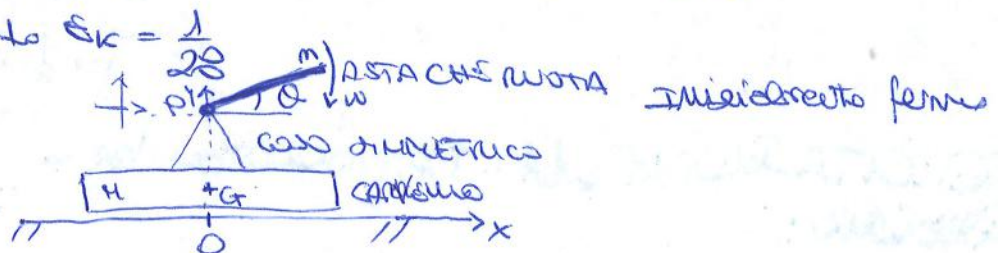 to Ek = 1
20
m
ASTA CHE RUOTA
P
θ
ω
Inizialmente fermo
COSO SIMMETRICO
M
+G
CARRELLO
O
x